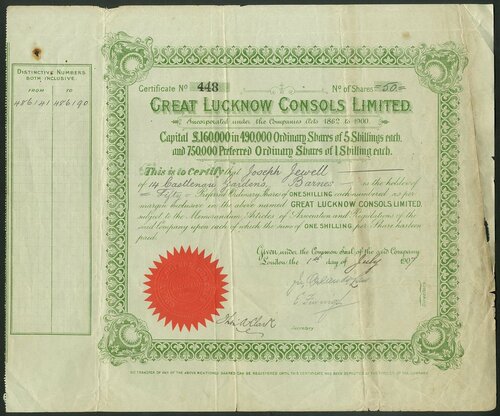 DISTINCTIVE NUMBERS
BOTH INCLUSIVE.
FROM TO
486141 486190
Certificate No 448 No of Shares =50=
GREAT LUCKNOW CONSOLS LIMITED.
Incorporated under the Companies Acts 1862 to 1900.
Capital £160,000 in 490,000 Ordinary Shares of 5 Shillings each.
and 750,000 Preferred Ordinary Shares of 1 Shilling each.
This is to Certify that Joseph Jewell
of 14 Castlenau Gardens, Barnes is the holder of
Fifty Preferred Ordinary Shares of ONE SHILLING each numbered as per
margin inclusive in the above named GREAT LUCKNOW CONSOLS LIMITED,
subject to the Memorandum Articles of Association and Regulations of the
said Company upon each of which the sum of ONE SHILLING per Share has been
paid.
Given under the Common Seal of the said Company
London, the 1st day of July 1907
Secretary
NO TRANSFER OF ANY OF THE ABOVE MENTIONED SHARES CAN BE REGISTERED UNTIL THIS CERTIFICATE HAS BEEN DEPOSITED AT THE OFFICES OF THE COMPANY